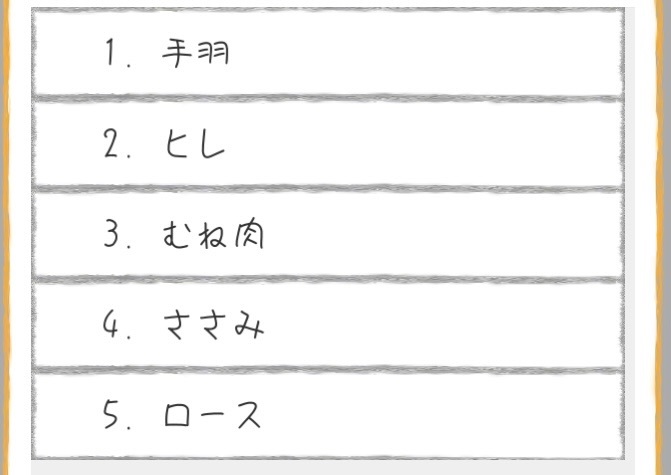 1. 手羽
2. ヒレ
3. むね肉
4. ささみ
5. ロース